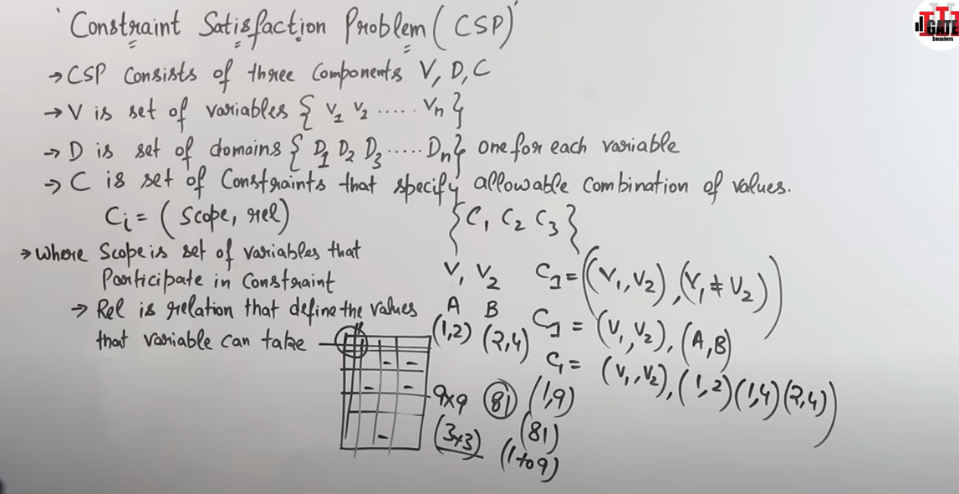 'Constraint Satisfaction Problem (CSP)'
→ CSP Consists of three Components V, D, C
→ V is set of variables { V1 V2 ..... Vn }
→ D is set of domains { D1 D2 D3 ..... Dn } one for each variable
→ C is set of Constraints that specify allowable Combination of values.
Ci = (Scope, rel)
{ C1 C2 C3 }
→ Where Scope is set of variables that
Participate in Constraint
→ Rel is relation that define the values
that variable can take
V1 V2
A B
(1,2) (2,4)
C1 = ((V1, V2), (V1 ≠ V2))
C1 = (V1, V2), (A, B)
C1 = (V1, V2), (1,2) (1,4) (2,4))
9x9 81 (1,9)
(3x3) (81)
(1 to 9)
GATE
Smashers